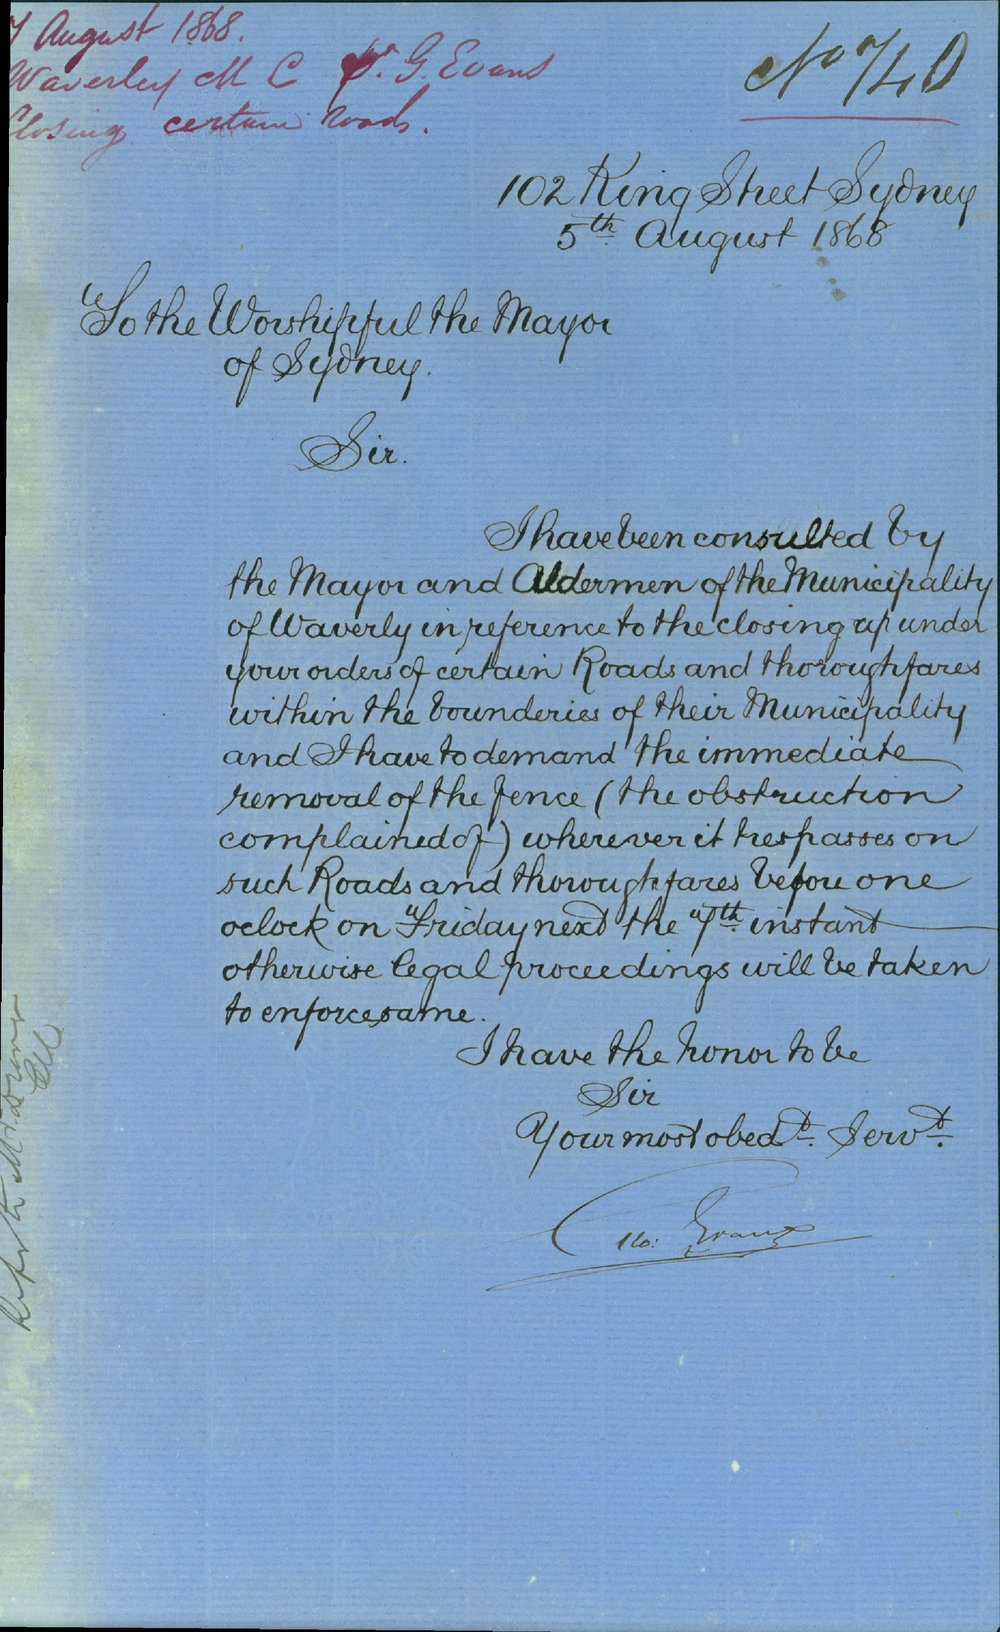 7 August 1868.
Waverley M C pr. G. Evans
Closing certain roads.
No 740
102 King Street Sydney
5th August 1868
To the Worshipful the Mayor
of Sydney.
Sir.
I have been consulted by
the Mayor and Aldermen of the Municipality
of Waverly in reference to the closing up under
your orders of certain Roads and thoroughfares
within the bounderies of their Municipality
and I have to demand the immediate
removal of the fence (the obstruction
complained of) wherever it trespasses on
such Roads and thoroughfares before one
oclock on Friday next the 7th instant
otherwise legal proceedings will be taken
to enforce same.
I have the honor to be
Sir
Your most obedt. Servt.
Geo: Evans